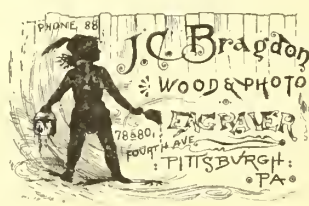 PHONE 88
J.C. Bragdon
WOOD & PHOTO
ENGRAVER
78 & 80,
FOURTH AVE
PITTSBURGH:
PA